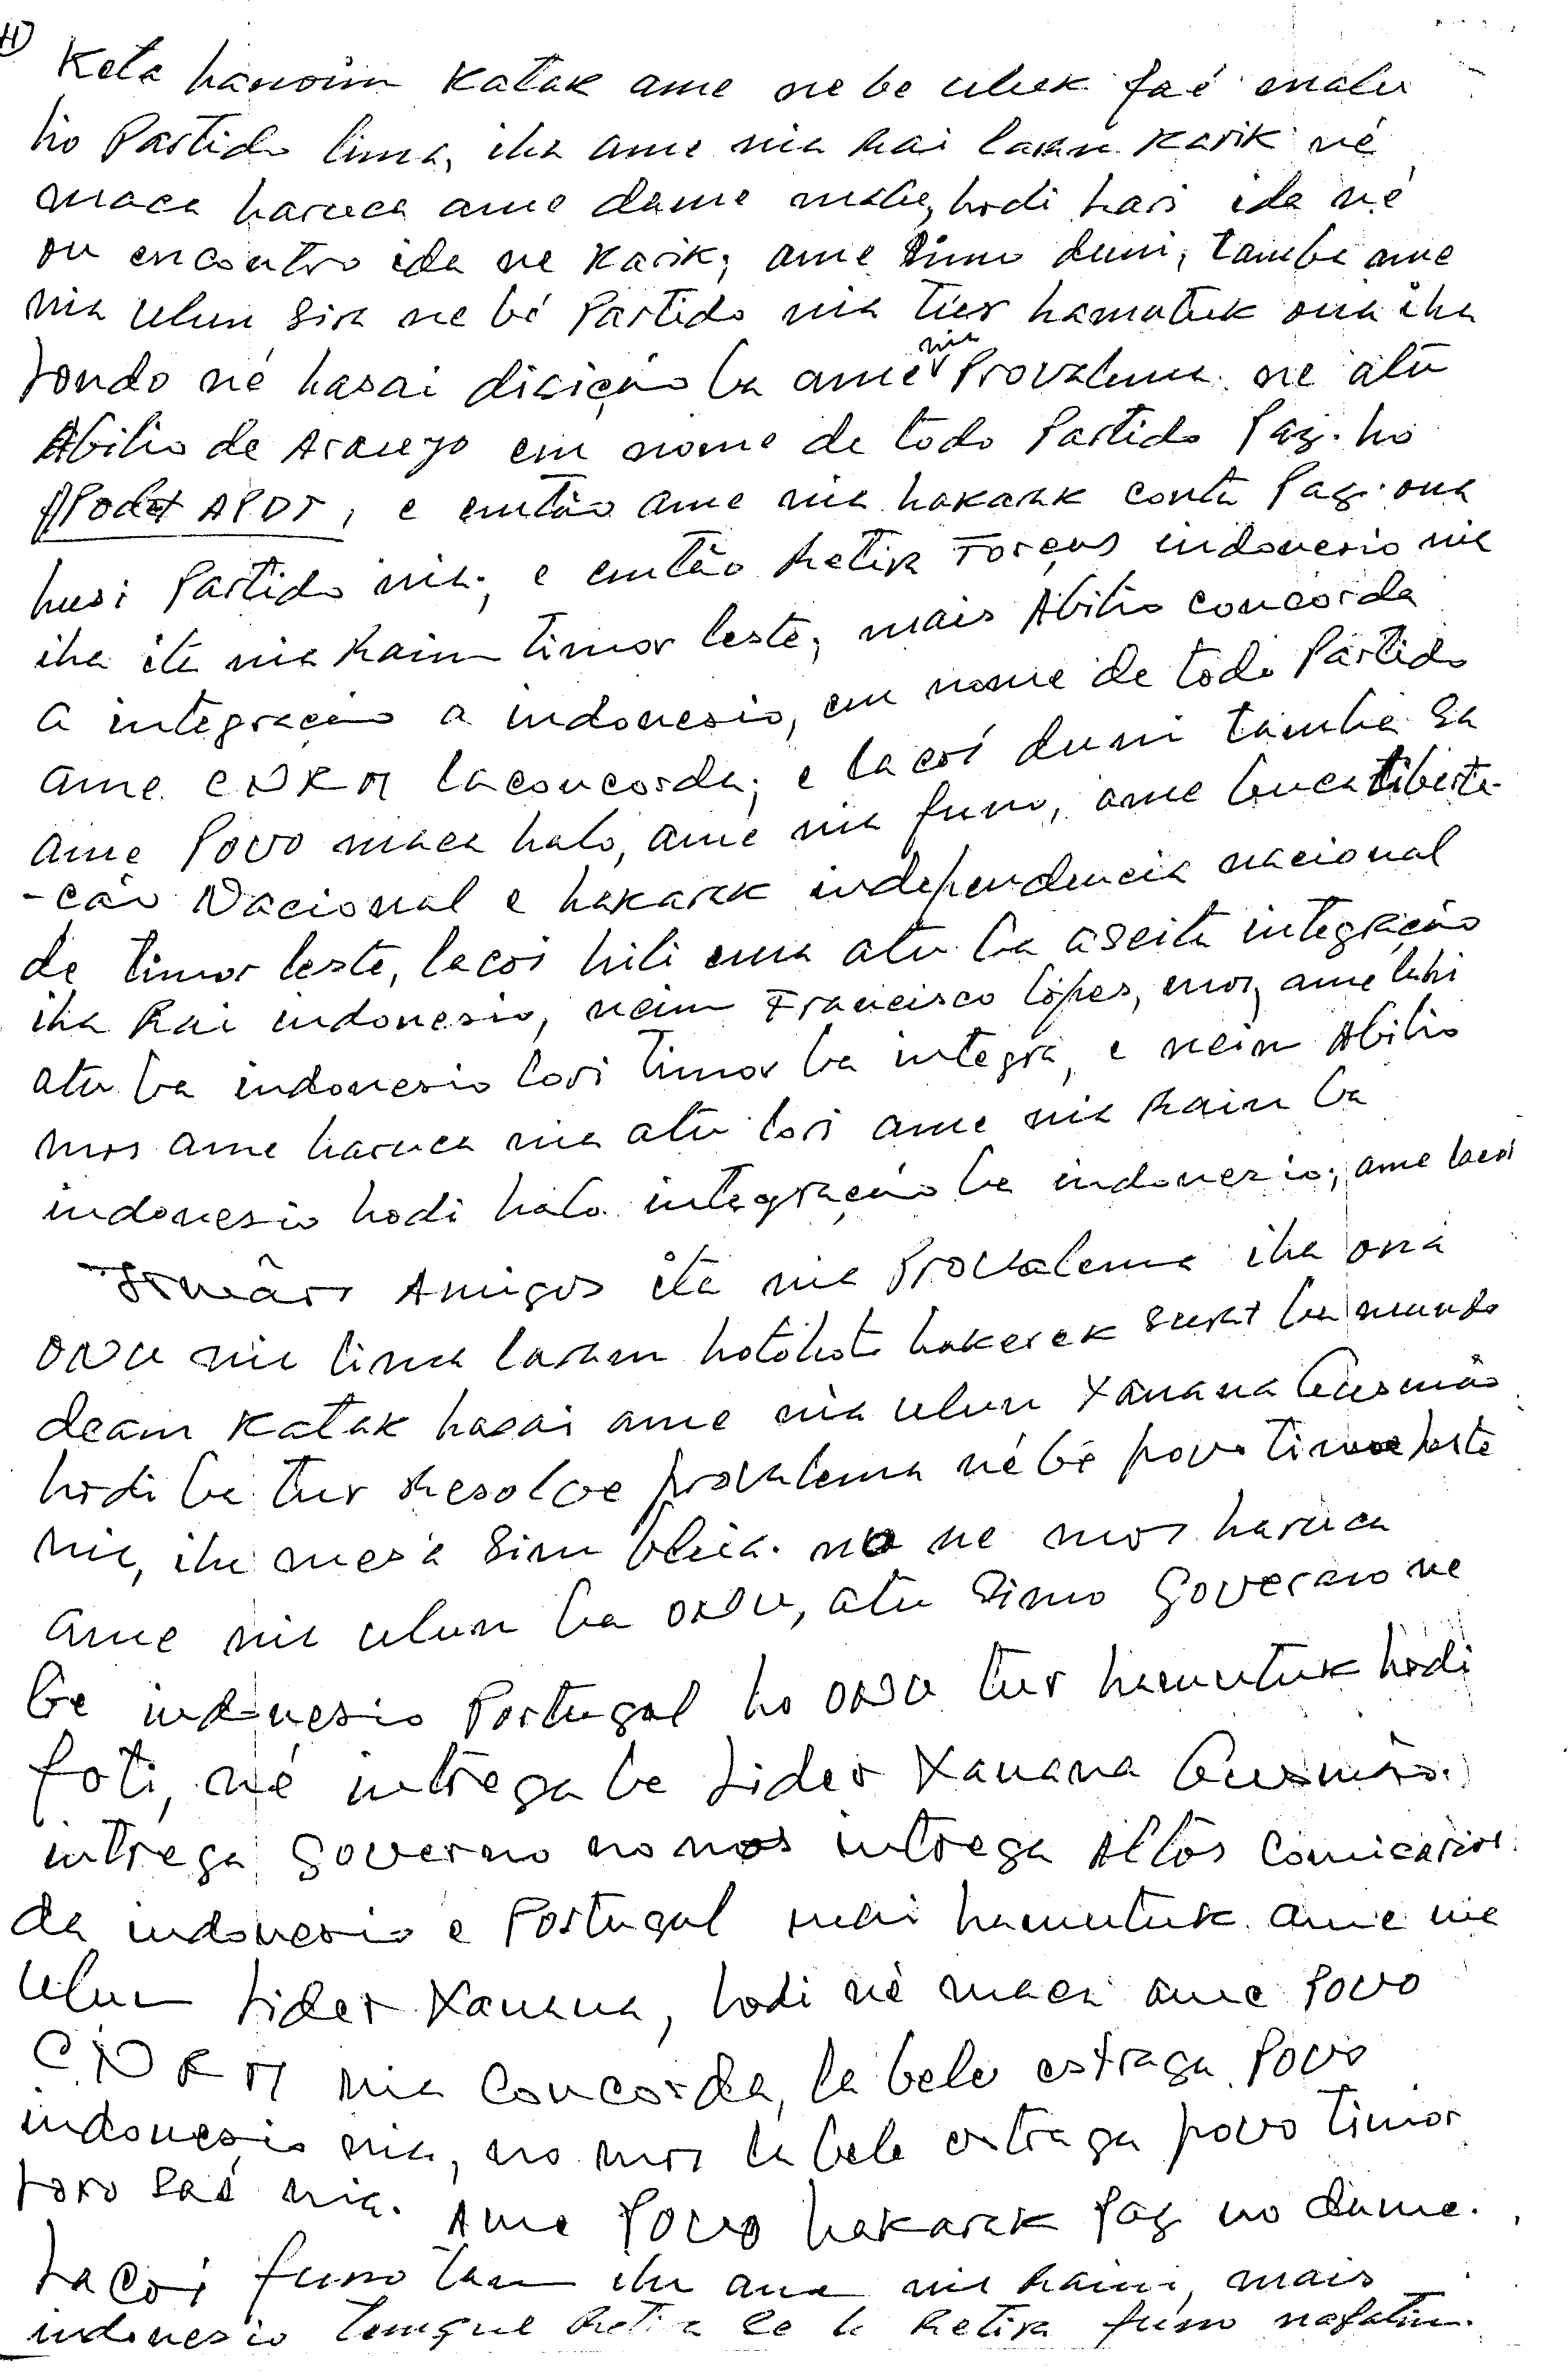 Keta hanoin Katak ame ne be uluk faé malu
ho Partido lima, iha ame nia rai laran Karik né
maca haruca ame dame malu, hodi hari ida né
ou encontro ida ne Karik; ame simo duni, tamba ame
nia ulun sira ne bé Partido nia tuur hamutuk ona iha
Londo né hasai disição ba ame nia Provalema ne atu
Abilio de Araujo em nome de todo Partido Paz. ho
Apodet APDT, e então ame nia hakarak conta Paz ona
husi Partido nia; e então Retira Forças indonesio nia
iha ita nia Rain timor leste; mais Abilio concorda
a integração a indonesio, em nome de todo Partido
ame CNRM laconcorda; e lacoi duni tamba sa
ame Povo maca halo, ame nia funo, ame buca liberta-
-cão Nacional e hakarak independencia nacional
de timor leste, lacoi hili ema atu ba aseita integração
iha Rai indonesio, nein Francisco Lopes, mos, ame hili
atu ba indonesio lori Timor ba integra, e nein Abilio
mos ame haruca nia atu lori ame nia Rain ba
indonesio hodi halo integração ba indonesio; ame lacoi
Irmãos Amigos ita nia Provalema iha ona
ONU nia lima laran hotohoto hakerek surat ba mundo
deam Katak hasai ame nia ulun Xanana Gusmão
hodi ba tur Resolve provalema né bé povo timor leste
nia, iha mesa sim blica. no ne mos haruca
ame nia ulun ba ONU, atu simo Governo ne
be indonesio Portugal ho ONU tur hamutuk hodi
foti, né intrega ba Lider Xanana Gusmão.
intrega Governo no mos intrega Altos Comicarios
da indonesio e Portugal mai hamutuk ame nia
ulun Lider Xanana, hodi né maca ame Povo
CNRM nia Concorda, la bele estraga Povo
indonesio nia, no mos la bele estraga povo timor
Loro saé nia. Ame Povo hakarak Paz no dame.
Lacoi funo tan iha ame nia rain, mais
indonesio tenque Retira se la Retira funo nafatin.